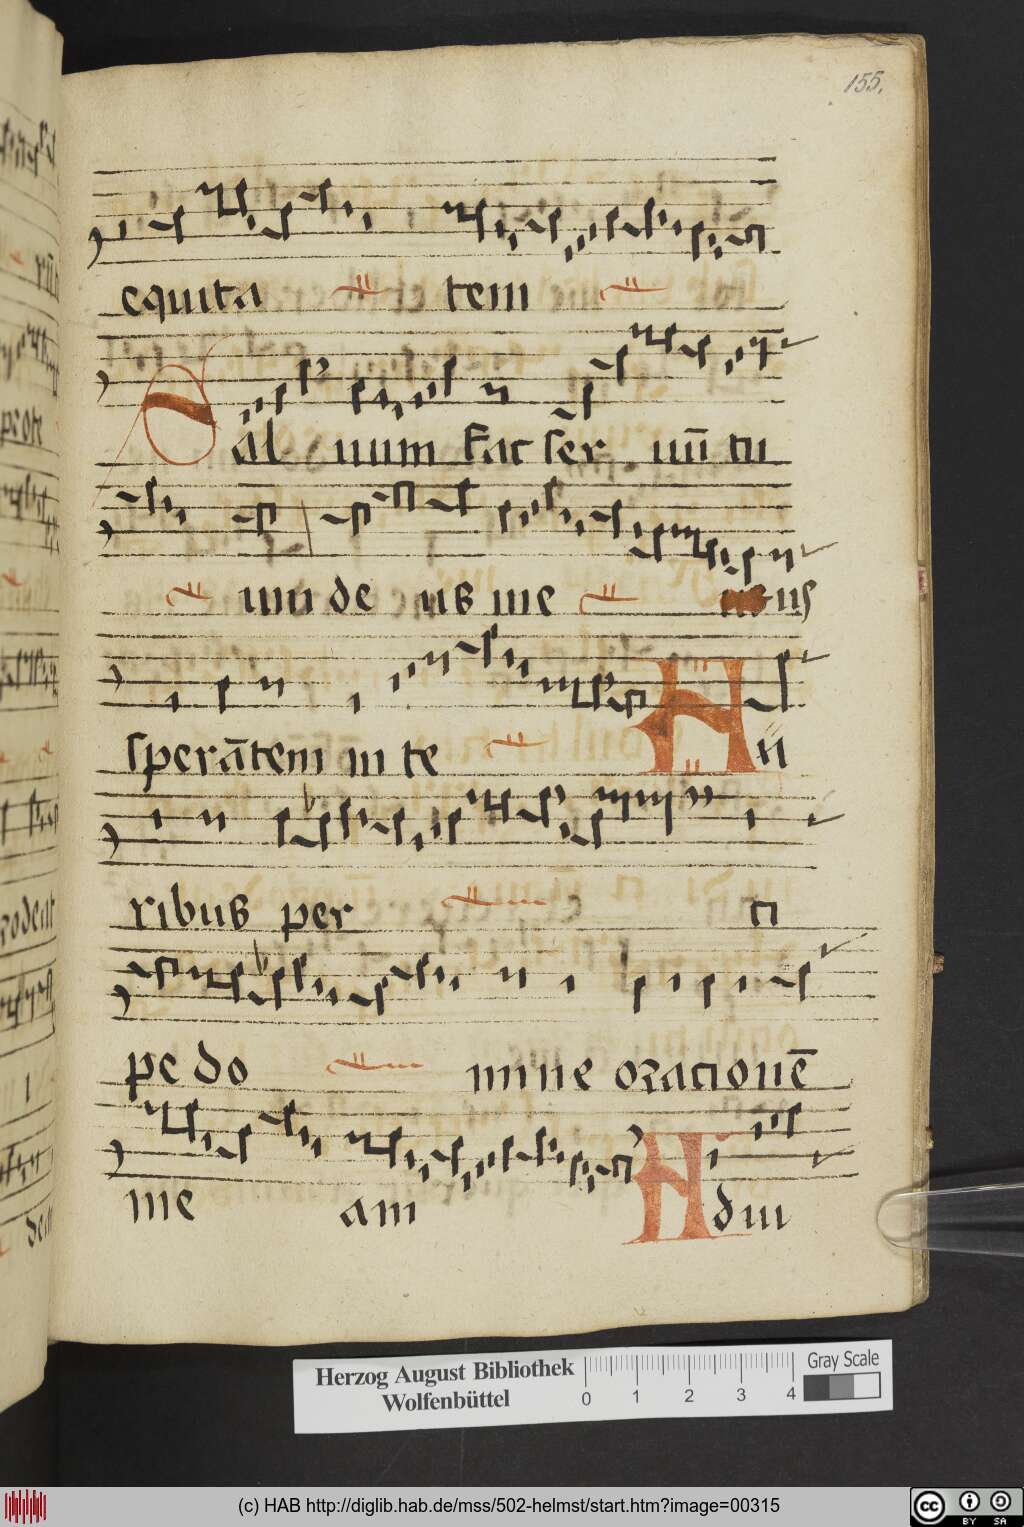 155.
equita tem
Sal uum fac ser uū tu
um de us me us
sperātem in te Au
ribus per ci
pe do mine oracionē
me am Adiu
Herzog August Bibliothek
Wolfenbüttel
0 1 2 3 4
Gray Scale
(c) HAB http://diglib.hab.de/mss/502-helmst/start.htm?image=00315
cc BY SA